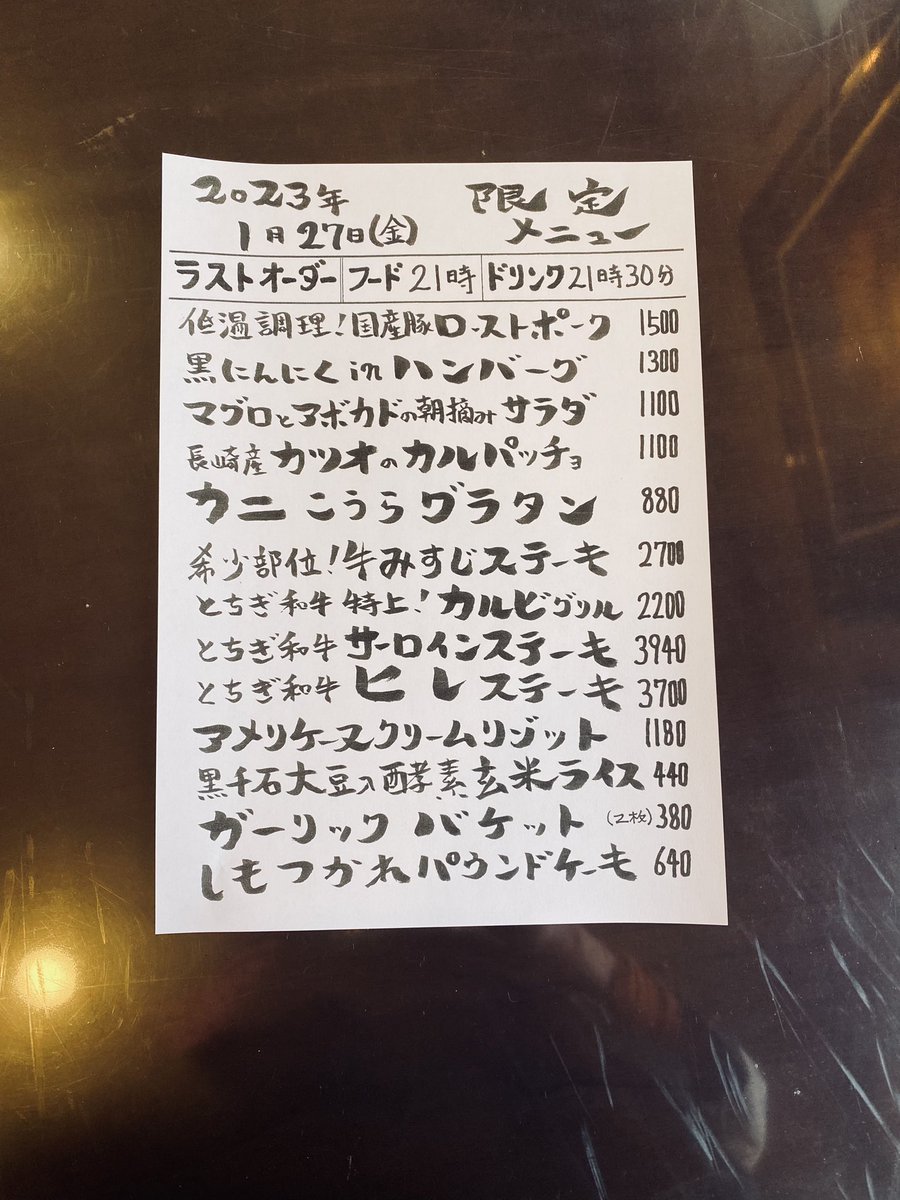 2023年 限定
1月27日(金) メニュー
ラストオーダー フード21時 ドリンク21時30分
低温調理!国産豚ローストポーク 1500
黒にんにくinハンバーグ 1300
マグロとアボカドの朝摘みサラダ 1100
長崎産カツオのカルパッチョ 1100
カニこうらグラタン 880
希少部位!牛みすじステーキ 2700
とちぎ和牛特上!カルビグリル 2200
とちぎ和牛サーロインステーキ 3940
とちぎ和牛ヒレステーキ 3700
アメリケーヌクリームリゾット 1180
黒千石大豆入酵素玄米ライス 440
ガーリックバケット(2枚)380
しもつかれパウンドケーキ 640